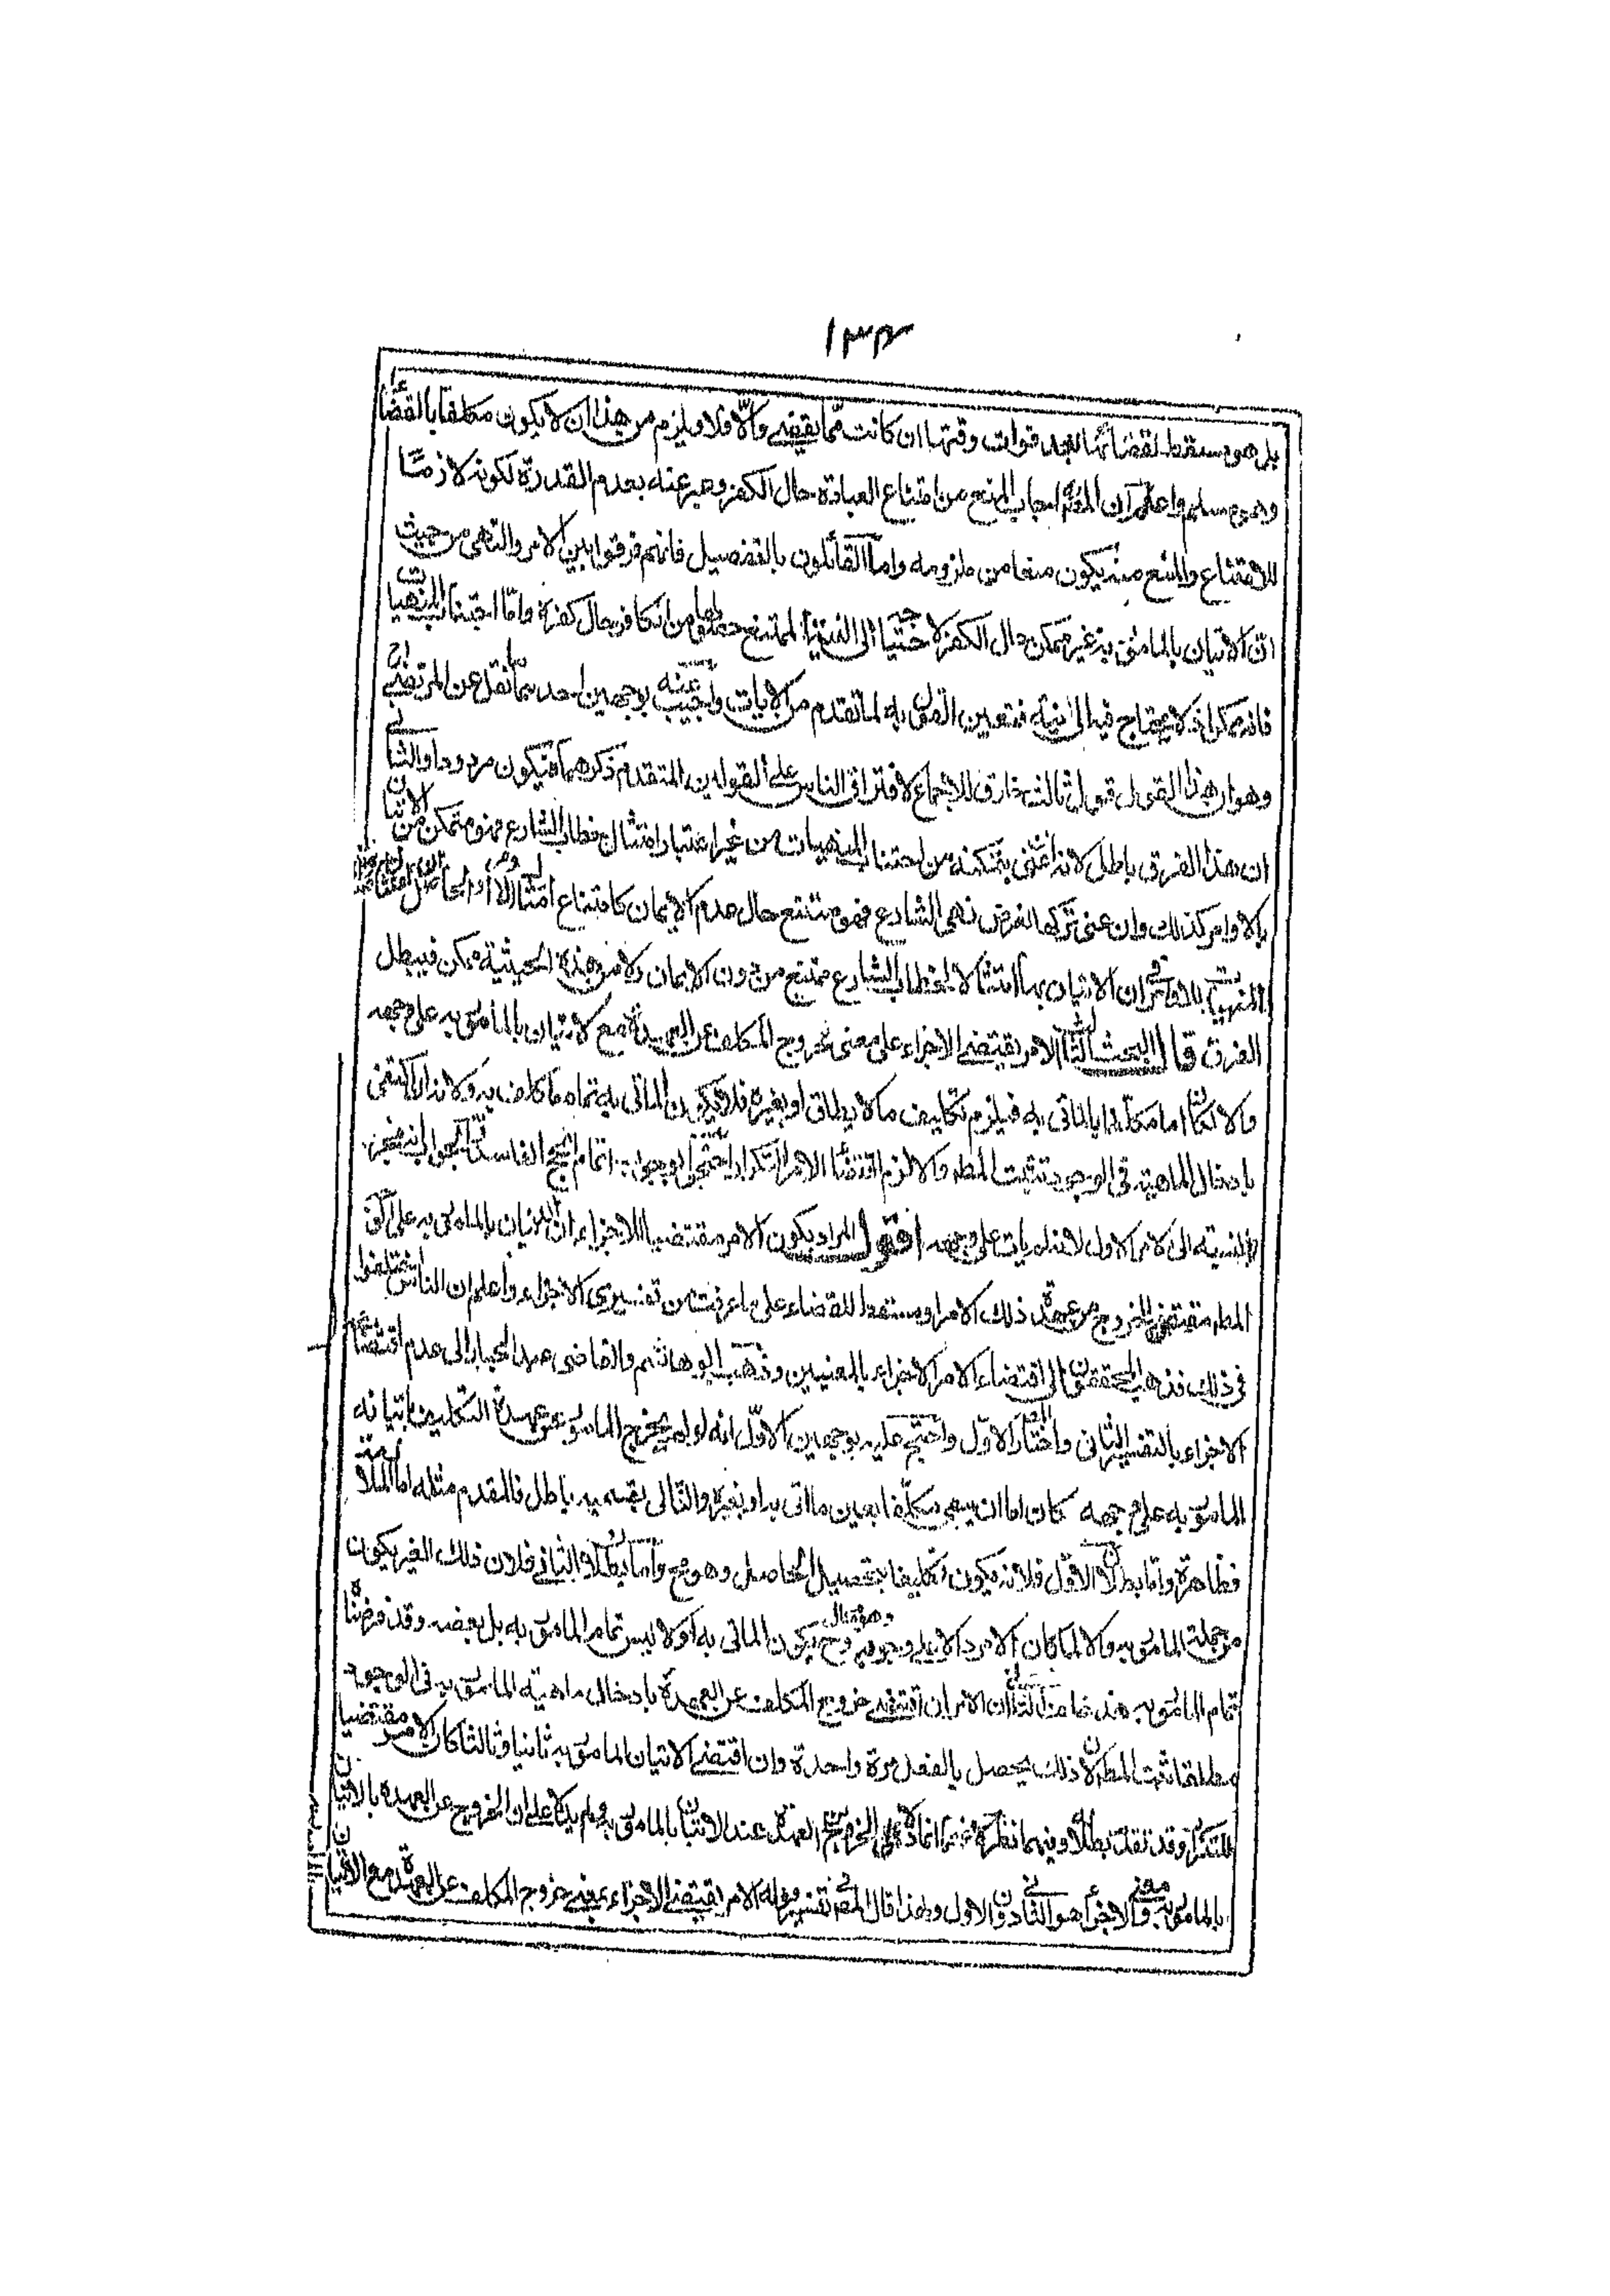 ١٣٣
بل هو مسقط لقضائها بعد فوات وقتها ان كانت مما يقضى والا فلا ويلزم من هذا ان لا يكون مكلفا بالقضاء
وهو مسلم واعلم ان المصّ اجاب بالمنع من امتناع العبادة حال الكفر وعبر عنه بعدم القدرة لكونه لازما
للامتناع والمنع منه يكون منعا من ملزومه واما القائلون بالتفصيل فانهم فرقوا بين الامر والنهى من حيث
ان الاتيان بالمامور به غير ممكن حال الكفر لاحتياجه الى النية الممتنع حصولها من الكافر حال كفره واما اجتناب المنهيات
فانه ممكن اذ لا يحتاج فيه الى نية فتعين القول به لما تقدم من الايات واجيب عنه بوجهين احدهما نقل عن المرتضى
وهو ان هذا القول قول ثالث خارق للاجماع لافتراق الناس على القولين المتقدم ذكرهما فيكون مردودا والثانى
ان هذا الفرق باطل لانه ان عنى تمكنه من اجتناب المنهيات من غير اعتبار امتثال خطاب الشارع فهو متمكن من الاتيان
بالاوامر كذلك وان عنى تركها لغرض نهى الشارع فهو ممتنع حال عدم الايمان كامتناع امتثال الاوامر والحاصل
ان الاتيان بها امتثالا لخطاب الشارع ممتنع من دون الايمان ولا من هذه الحيثية ممكن فيبطل
الفرق قال البحث الثالث الامر يقتضى الاجزاء على معنى خروج المكلف عن العهدة مع الاتيان بالمامور به على وجهه
والا لكان اما مكلفا بالماتى به فيلزم تكليف ما لا يطاق او بغيره فلا يكون الماتى به تمام ما كلف به ولانه
بادخال الماهية فى الوجود ثبت المط والا لزم اقتضاء الامر التكرار احتجوا بوجوب اتمام الحج الفاسد والجواب انه مجز
بالنسبة الى الامر الاول لانه لم يات على وجهه اقول المراد بكون الامر مقتضيا للاجزاء ان الاتيان بالمامور به على الوجه
المط مقتضى للخروج عن عهدة ذلك الامر او مسقط للقضاء على ما عرفت من تفسيرى الاجزاء واعلم ان الناس اختلفوا
فى ذلك فذهب المحققون الى اقتضاء الامر الاجزاء بالمعنيين وذهب ابو هاشم والقاضى عبد الجبار الى عدم اقتضائه
الاجزاء بالتفسير الثانى واختار المصّ الاول واحتج عليه بوجهين الاول انه لو لم يخرج المامور عن عهدة التكليف باتيانه
المامور به على وجهه كان اما ان يبقى مكلفا بعين ما اتى به او بغيره والتالى بقسميه باطل فالمقدم مثله اما الملازمة
فظاهرة واما بطلان الاول فلانه يكون تكليفا بتحصيل الحاصل وهو مح واما بطلان الثانى فلان ذلك الغير يكون
من جملة المامور به والا لما كان الامر دالا على وجوبه وهو مح وح يكون الماتى به اولا ليس تمام المامور به بل بعضه وقد فرضناه
تمام المامور به هذا خلف الثانى ان الامر ان اقتضى خروج المكلف عن العهدة بادخال ماهية المامور به فى الوجود
مطلقا ثبت المط لان ذلك يحصل بالفعل مرة واحدة وان اقتضى الاتيان المامور به ثانيا وثالثا كان الامر مقتضيا
للتكرار وقد تقدم بطلانه وفيهما نظر عند الاتيان بالمامور به ولم يدلا على ان الخروج عن العهدة بالاتيان
بالمامور به معنى والاجزاء هو الثانى دون الاول ولهذا قال المصّ فى تفسير قوله الامر يقتضى الاجزاء بمعنى خروج المكلف عن العهدة مع الاتيان